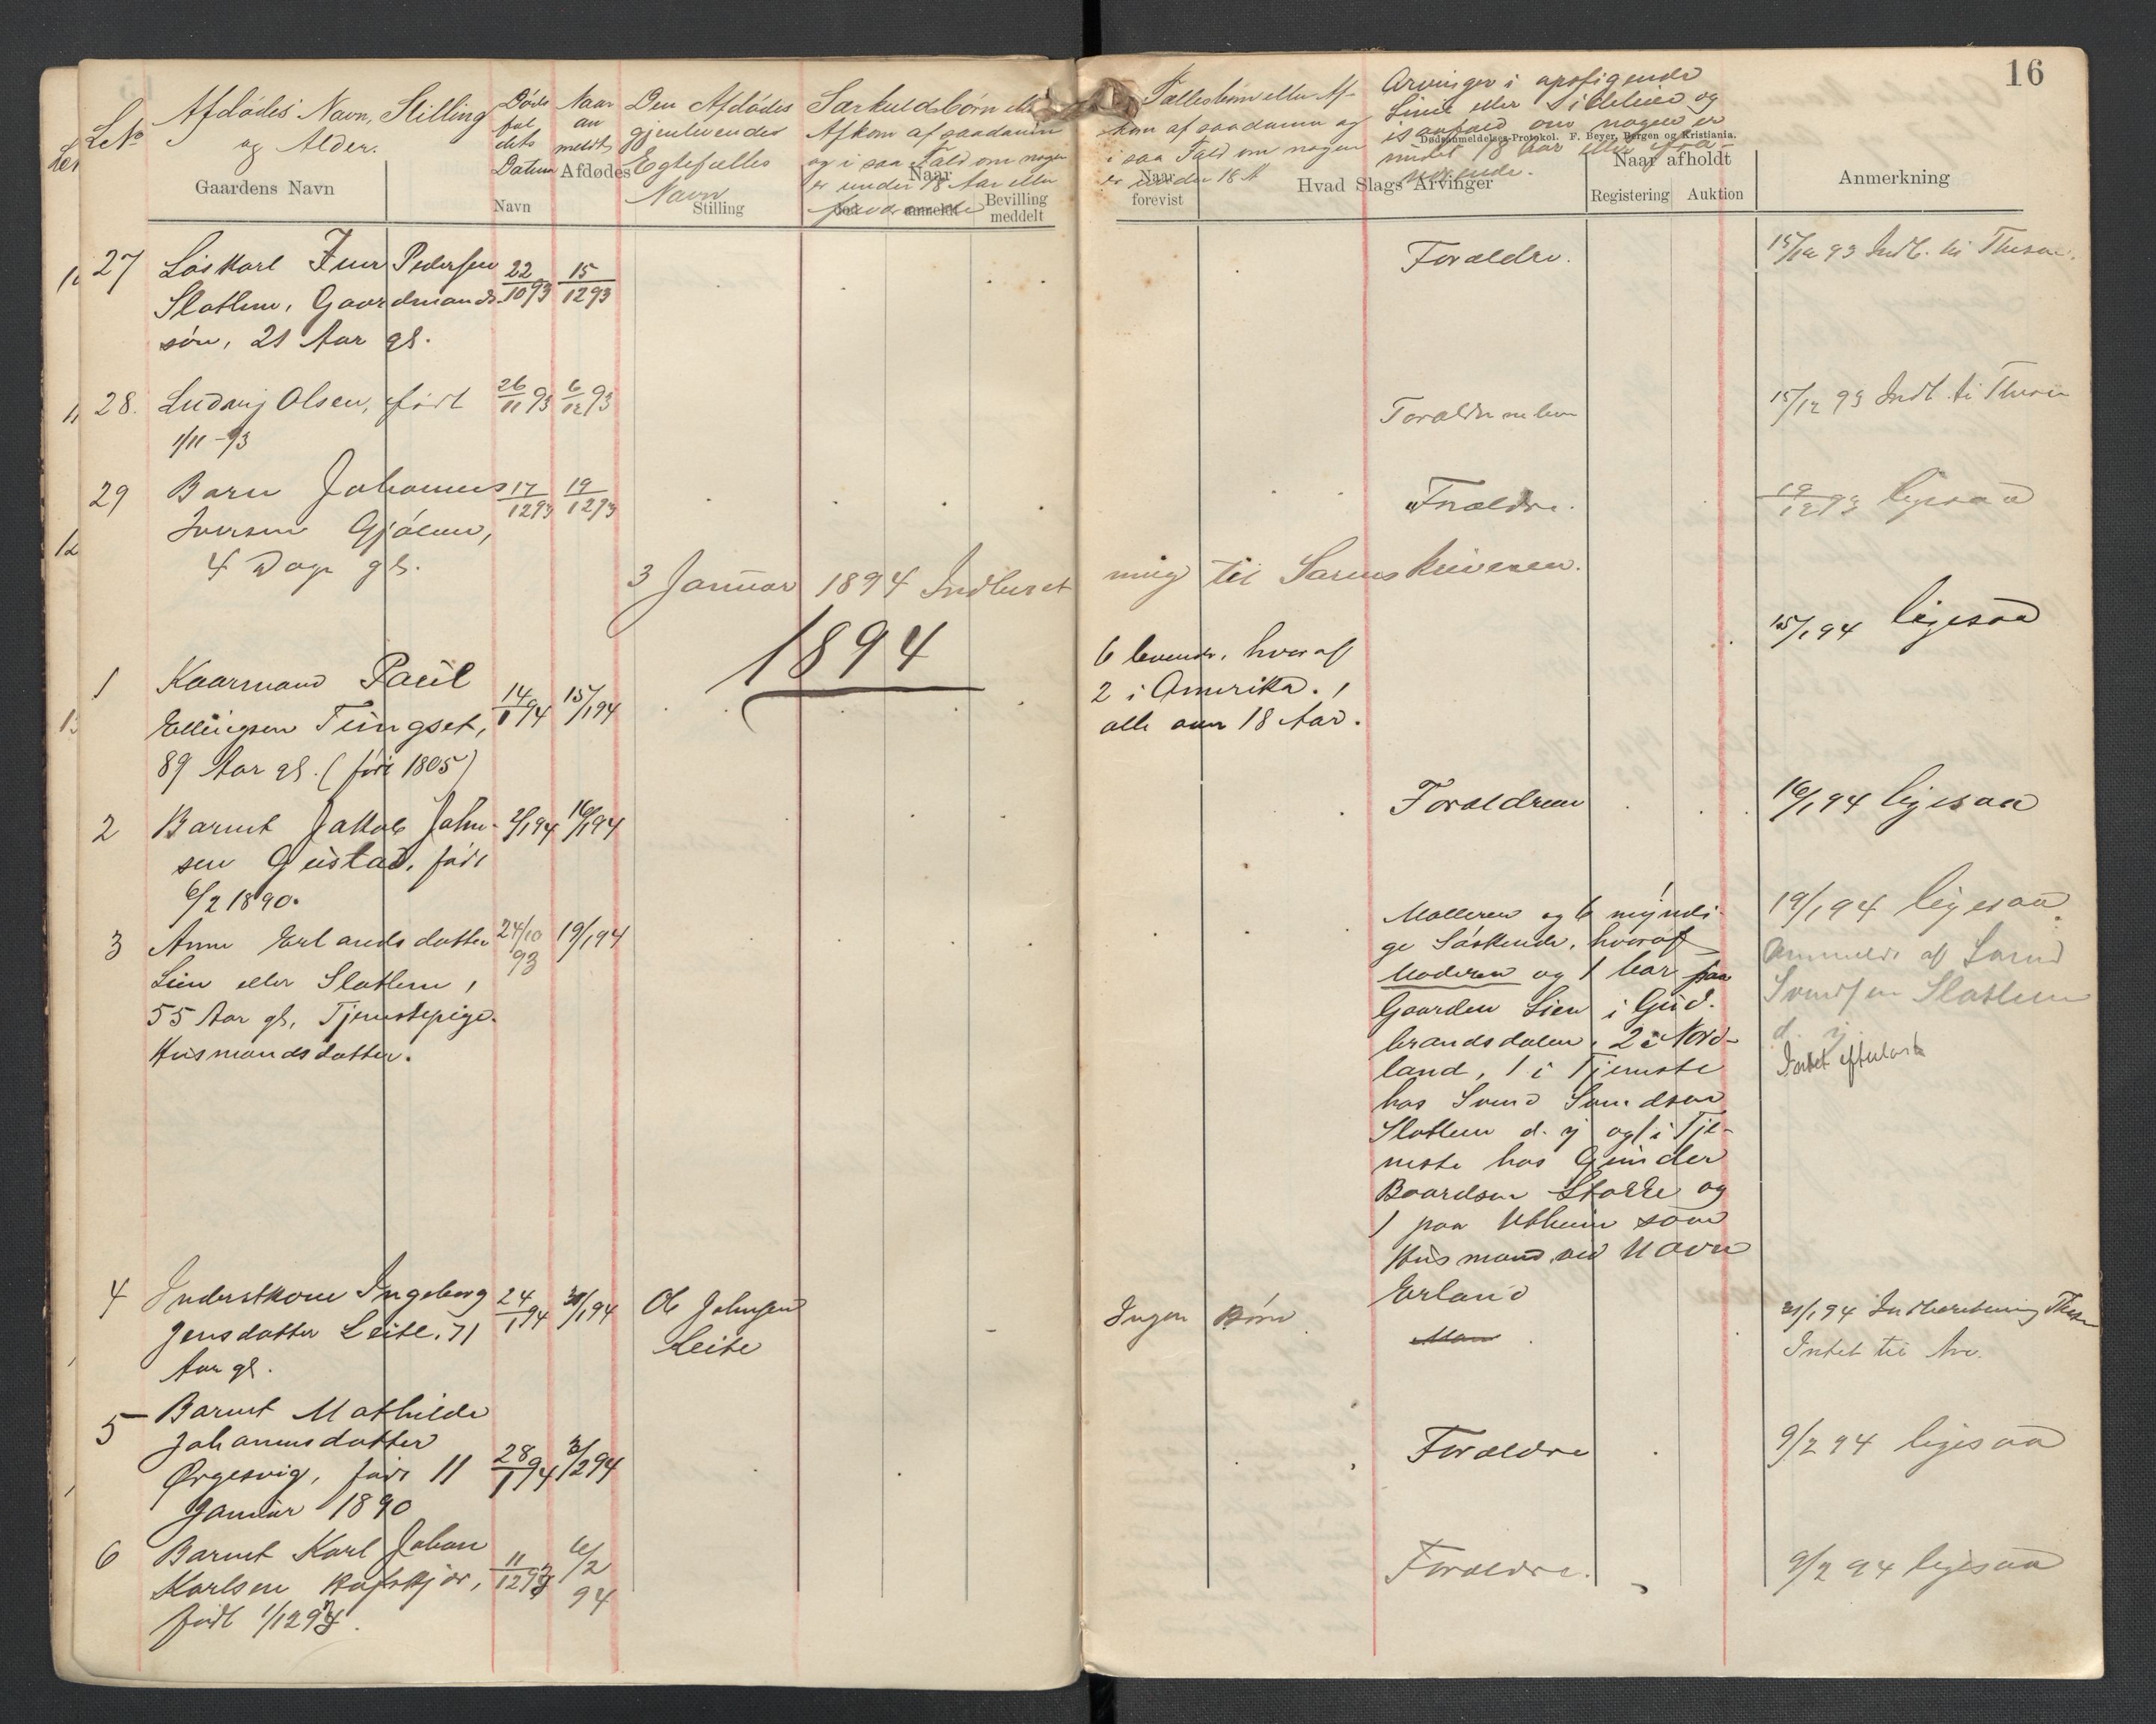 16
LNo
Afdødes Navn, Stilling
og Alder.
Gaardens Navn
Døds
fal
dets
Datum
Naar
an
meldt
Afdødes
Navn
Den Afdødes
gjenlevendes
Egtefælles
Navn
Stilling
Særkuldsbørn eller
Afkom af saadanne
og i saa Fald om nogen
er under 18 Aar eller
Naar
anmeldt
Bevilling
meddelt
Fællesbørn eller Af-
kom af saadanne og
i saa Fald om nogen
er under 18 A
Naar
forevist
Arvinger i opstigende
Linie eller Sidelinie og
isaafald om nogen er
Dødsanmeldelses-Protokol. F. Beyer, Bergen og Kristiania.
under 18 Aar eller fra-
værende.
Hvad Slags Arvinger
Naar afholdt
Registering
Auktion
Anmerkning
27
Løskarl Iver Pedersen
Slatlem, Gaardmands
søn, 21 Aar gl.
22/10 93
15/12 93
Forældre.
15/12 93 Indb. til Thesen.
28.
Ludvig Olsen, født
1/11-93
26/11 93
6/12 93
15/12 93 Indb. ti Thesen
29
Barn Johannes
Iversen Gjølme,
4 Dage gl.
17/12 93
19/12 93
Forældre.
19/12 93 ligesaa
3 Januar 1894 Indberet
ning til Sorenskriveren.
1894
1
Kaarmand Paul
Ellingsen Tungset,
89 Aar gl. (født 1805)
14/1 94
15/1 94
6 levende, hvoraf
2 i Amerika.,
alle over 18 Aar.
15/1 94 ligesaa
2
Barnet Jakob John-
sen Gustad, født
6/2 1890.
2/1 94
16/1 94
Forældrene
16/1 94 ligesaa
3
Anne Erlandsdatter
Lien eller Slatlem,
55 Aar gl, Tjenestepige.
Husmandsdatter.
24/10
93
19/1 94
Moderen og 6 myndi-
ge Søskende, hvoraf
Moderen og 1 bor paa
Gaarden Lien i Gud-
brandsdalen, 2 i Nord-
land, 1 i Tjeneste
hos Svend Svendsen
Slatlem d. y og 1 i Tje-
neste hos Gunder
Baardsen Stokke og
1 paa Utheim som
Husmand ved Navn
Erland
19/1 94 ligesaa
Anmeldt af Svend
Svendsen Slatlem
d. y.
Intet efterladt
4
Inderstkone Ingeborg
Jensdatter Leite, 71
Aar gl.
24/1 94
31/1 94
Ole Johnsen
Leite
Ingen Børn
Man
31/1 94 Indberetning Thesen
Intet til Arv.
5
Barnet Mathilde
Johannesdatter
Ørgesvig, født 11
Januar 1890
28/1 94
3/2 94
Forældre
9/2 94 ligesaa
6
Barnet Karl Johan
Karlsen
født 1/12 93.
11/12 93
6/2
94
Forældre.
9/2 94 ligesaa